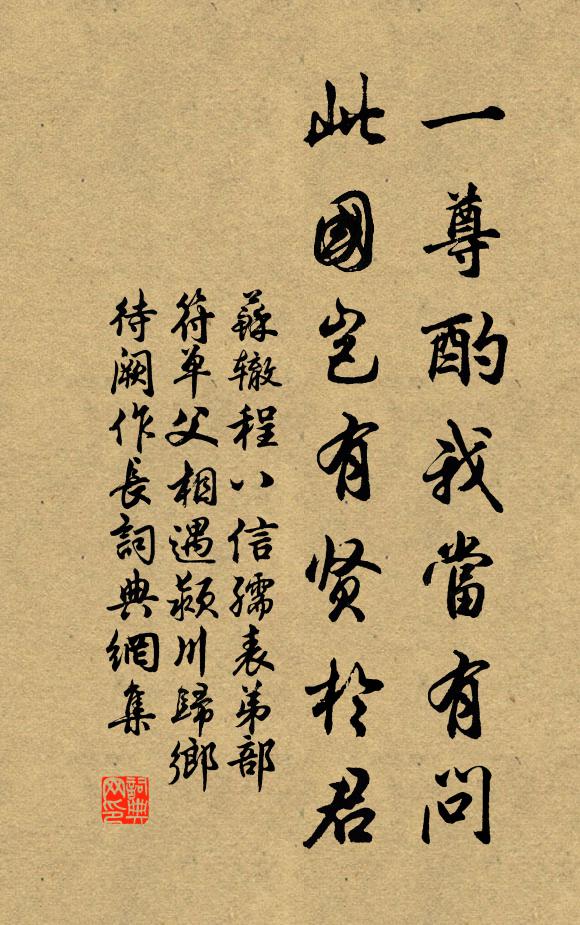 一尊酌我當有問
此國豈有賢於君
蘇辙程八信孺表弟剖
符单父相遇颍川歸鄉
待阙作長詞典網集
詞典網印